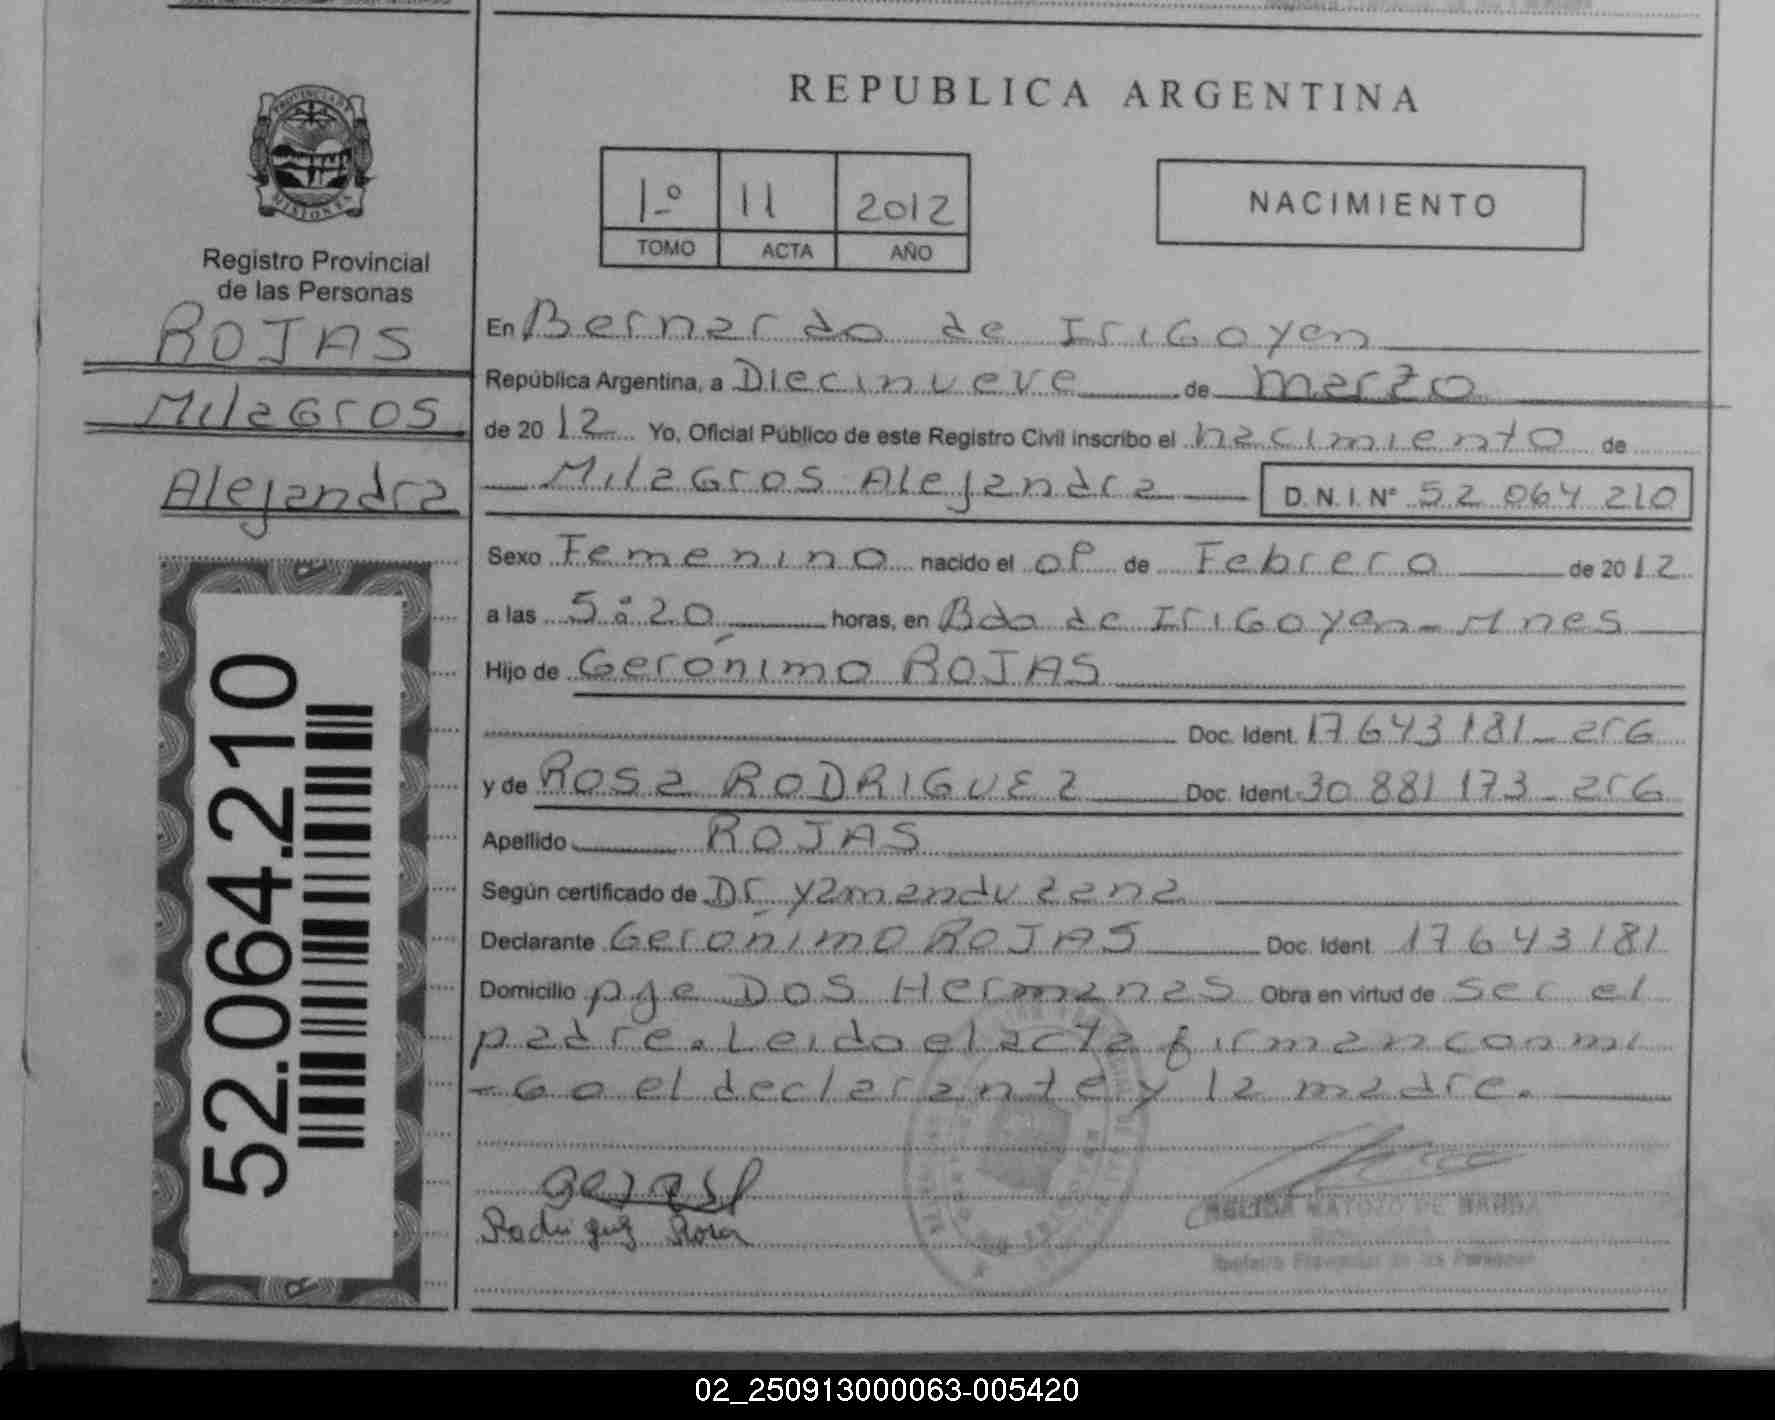 REPUBLICA ARGENTINA
PROVINCIA DE
MISIONES
Registro Provincial
de las Personas
ROJAS
Milagros
Alejandra
52.064.210
1º 11 2012
TOMO ACTA AÑO
NACIMIENTO
En Bernardo de Irigoyen
República Argentina, a Diecinueve de marzo
de 2012 Yo, Oficial Público de este Registro Civil inscribo el nacimiento de
Milagros Alejandra D.N.I. Nº 52 064 210
Sexo Femenino nacido el de Febrero de 2012
a las 5:20 horas, en Bdo de Irigoyen - Mnes
Hijo de Gerónimo ROJAS
Doc. Ident. 17643181 - arg
y de Rosa RODRIGUEZ Doc. Ident. 30 881 173 - arg
Apellido ROJAS
Según certificado de Dr. Yamandu
Declarante Gerónimo ROJAS Doc. Ident. 17643181
Domicilio pje Dos Hermanas Obra en virtud de ser el
padre. Leido el acta firman conmi
-go el declarante y la madre.
Rodriguez Rosa
02_250913000063-005420